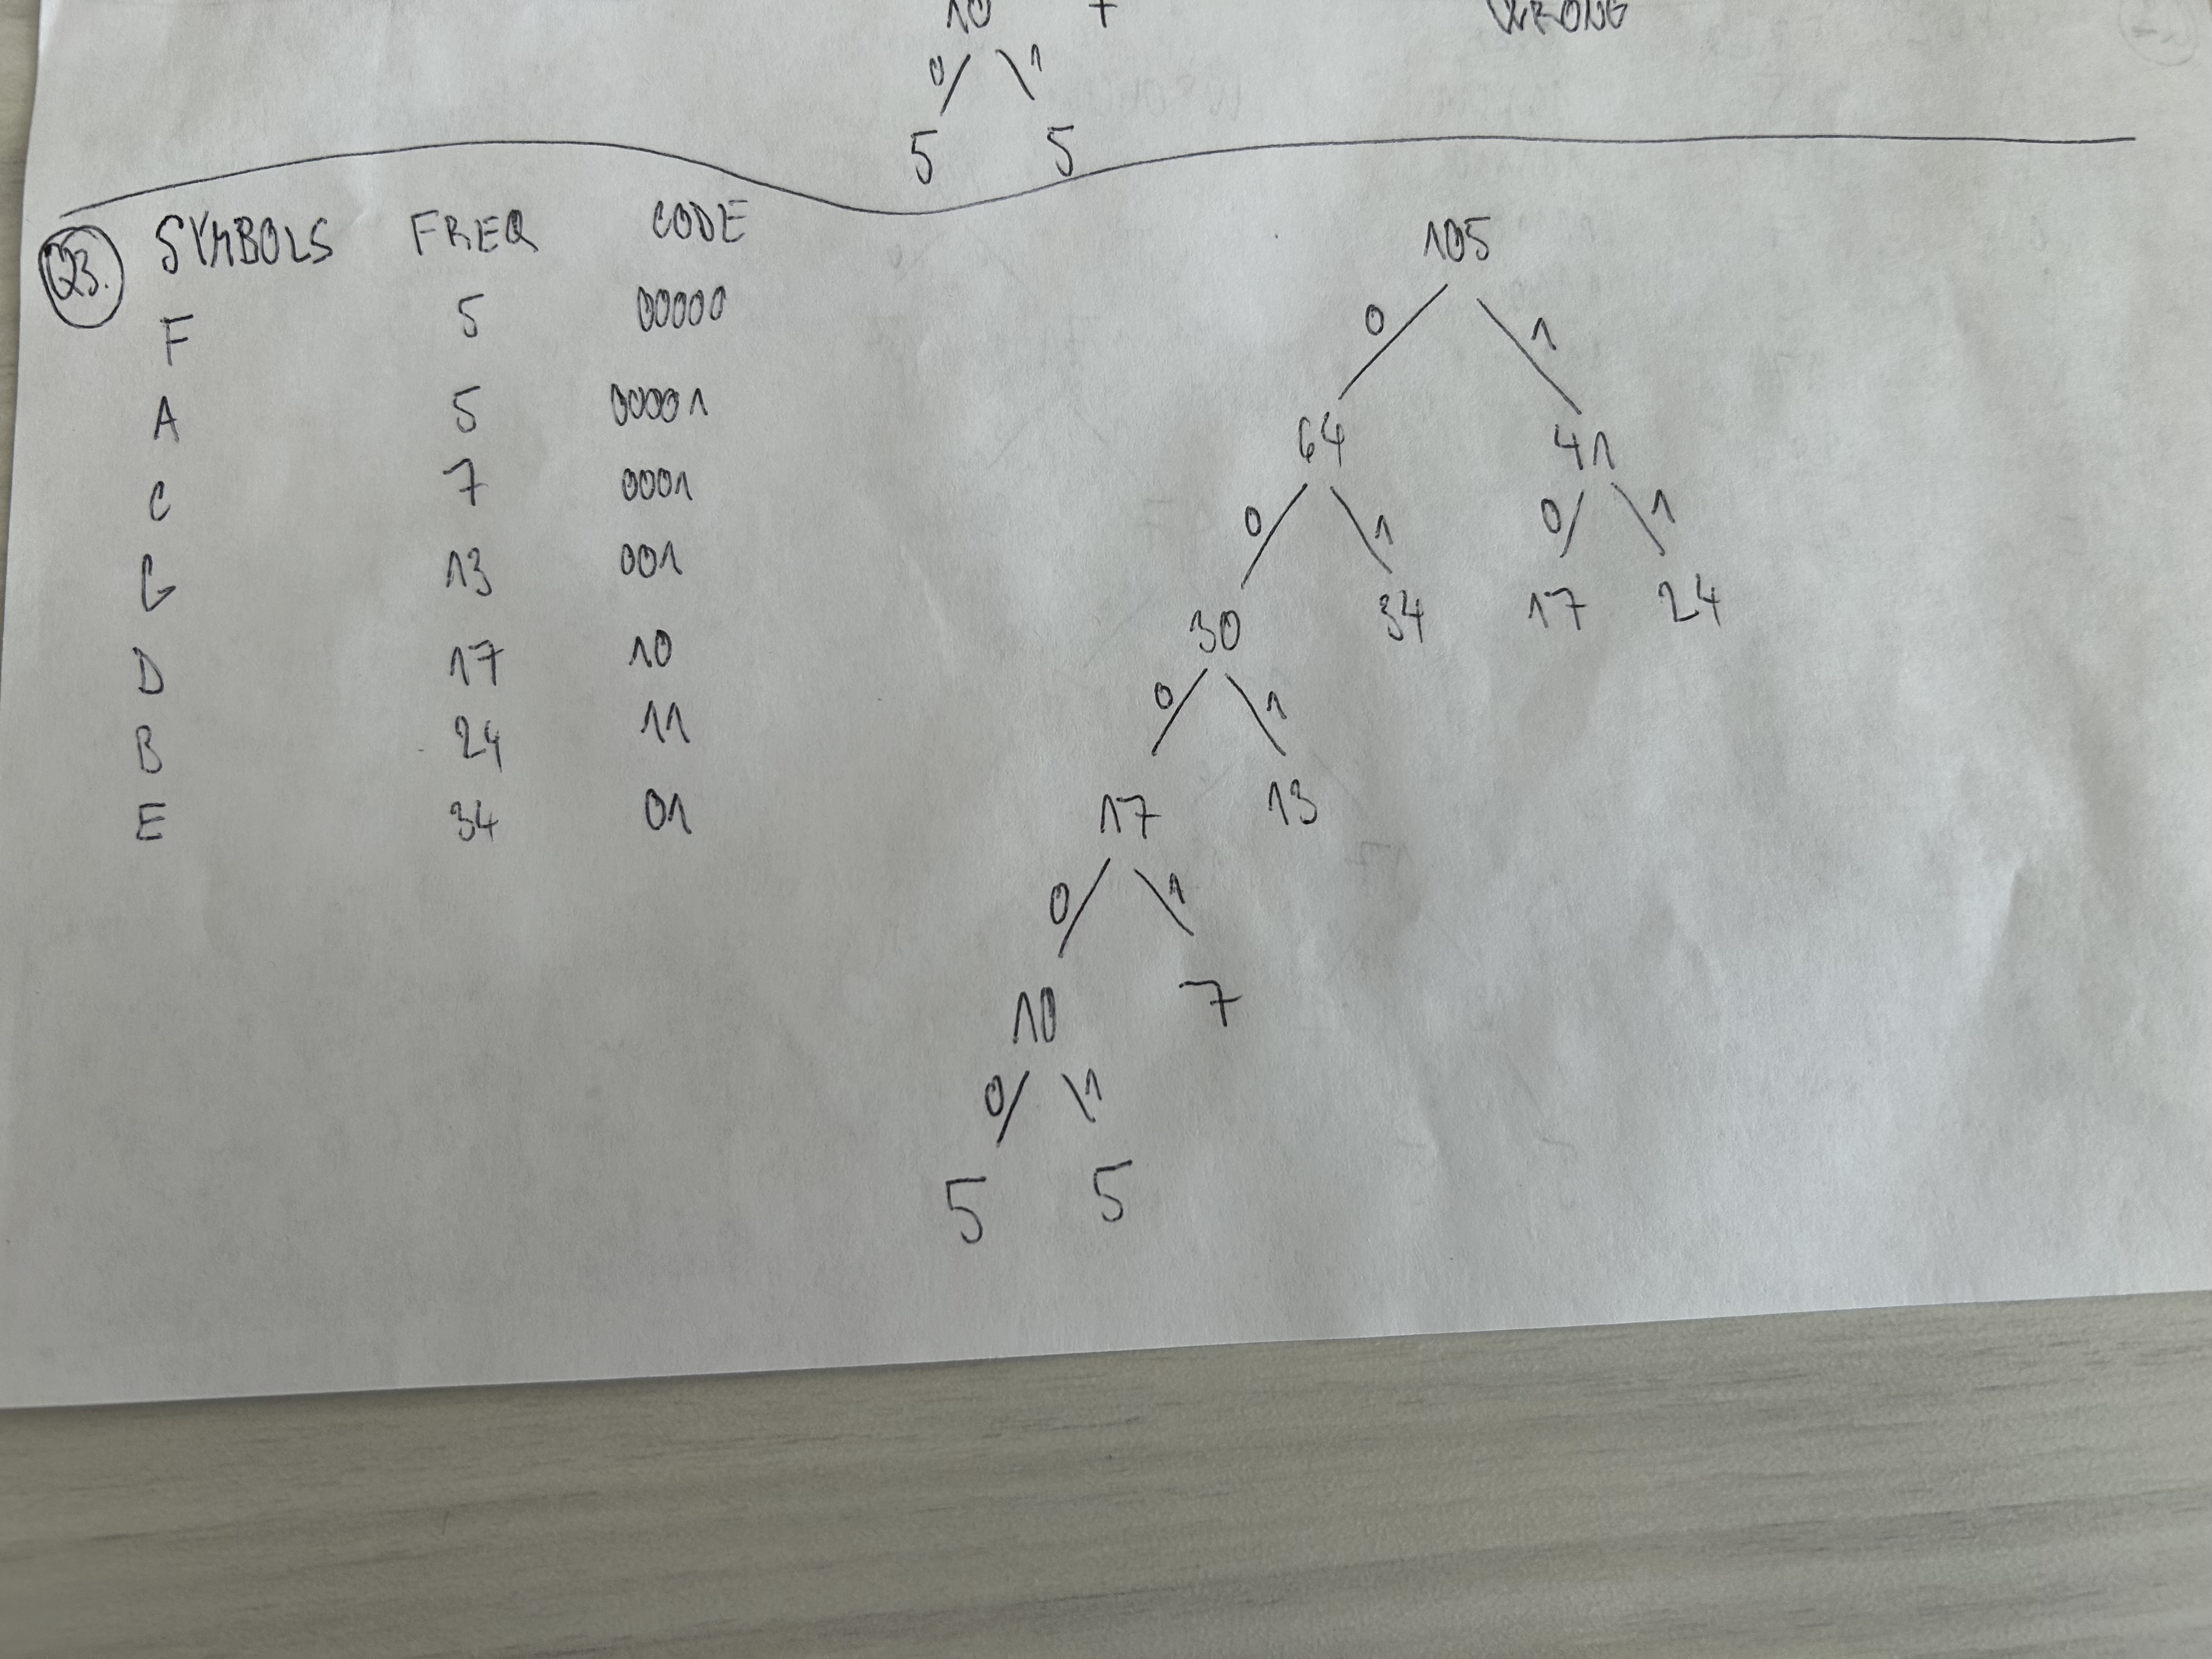 10
0 1 7
5 5
Q3.
SYMBOLS FREQ CODE
F 5 00000
A 5 00001
C 7 0001
G 13 001
D 17 10
B 24 11
E 34 01
105
0 1
64 41
0 1 0 1
30 34 17 24
0 1
17 13
0 1
10 7
0 1
5 5